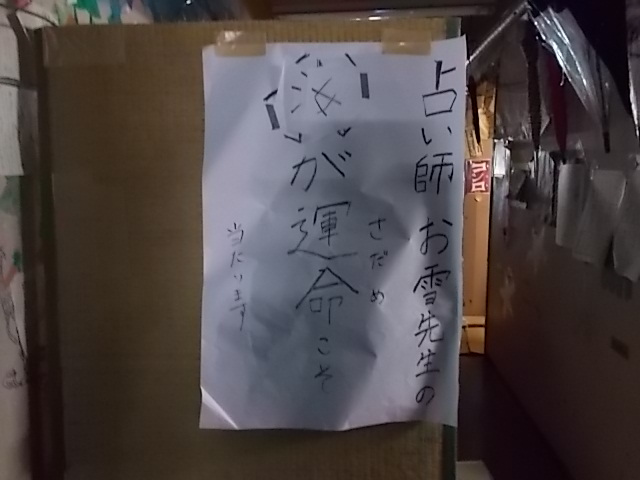 占い師 お雪先生の
さだめ
汝が運命こそ
当たります